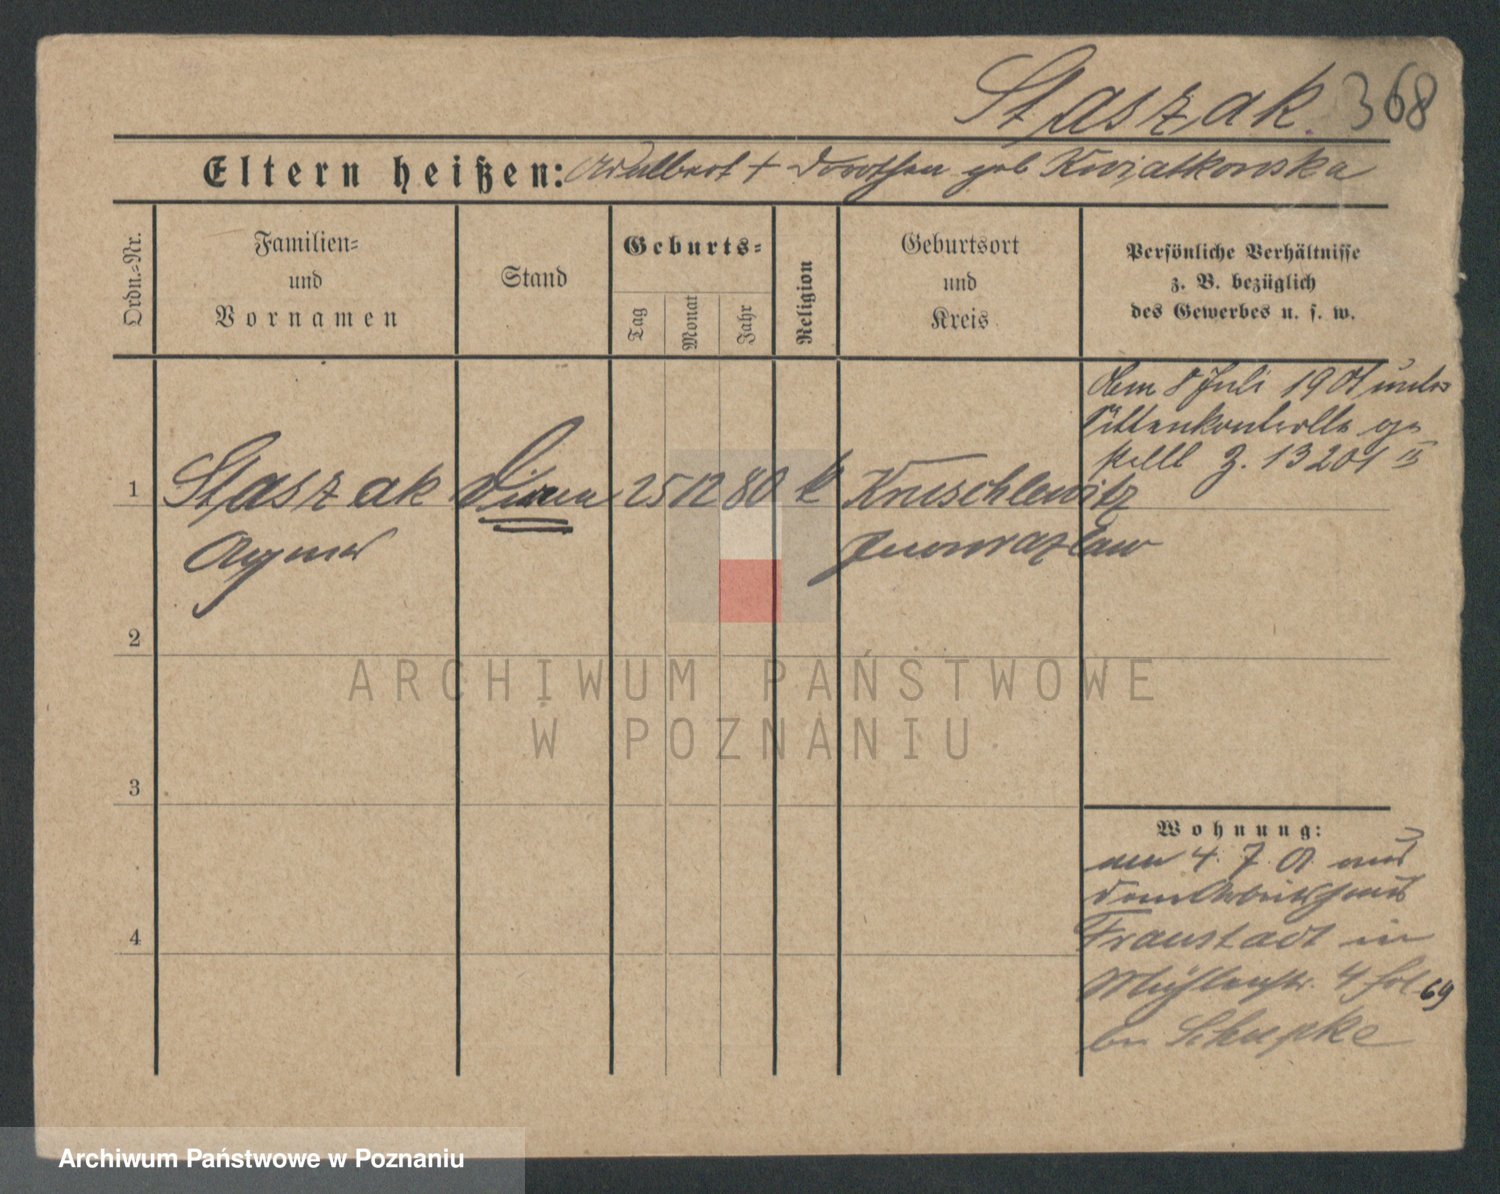 Staszak. 368
Eltern heißen: Adalbert + Dorothea geb Kwiatkowska
Ordn.=Nr.
Familien=
und
Vornamen
Stand
Geburts=
Tag
Monat
Jahr
Religion
Geburtsort
und
Kreis
Persönliche Verhältnisse
z. B. bezüglich
des Gewerbes u. s. w.
dem 8 Juli 1901 unter
Sittenkontrolle ge
stellt Z. 13201 II
1 Staszak Dirne 25 12 80 k Kruschlewitz
Agnes Inowrazlaw
2
ARCHIWUM PAŃSTWOWE
W POZNANIU
3
Wohnung:
am 4. 7. 01. aus
dem Arbeitshaus
Fraustadt in
Mühlenstr. 4 fol 69
bei Schupke
4
Archiwum Państwowe w Poznaniu